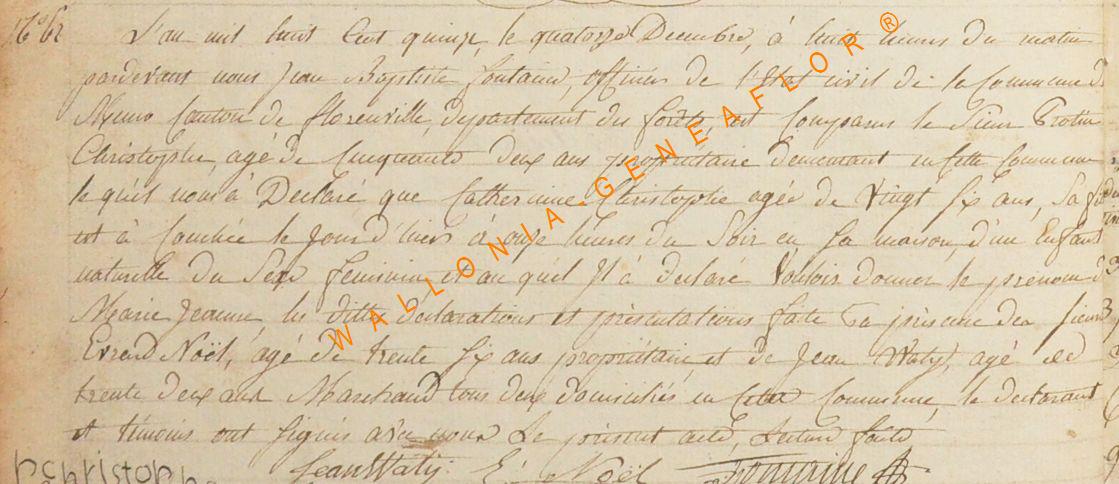 N° 62 L'an mil huit Cent quinze, le quatorze Decembre, à huit heures du matin
pardevant nous Jean Baptiste fontaine, officier de l'Etat civil de la Commune de
Muno Canton de florenville, departement des forêts, est Comparu le Sieur
Christophe, agé de Cinquante deux ans proprietaire demeurant en Cette Commune
le quel nous à Declaré que Catherinne Christophe agée de Vingt six ans, Sa
est à Couchée le Jour d'hier à onze heures du Soir en sa maison, d'un Enfant
naturelle du Sexe feminin, et au quel Il à declaré Vouloir donner le prenom de
Marie Jeanne, les dittes declarations et presentations faite En presence des sieurs
Evrard Noël, agé de trente six ans propriétaire, et de Jean Waty, agé de
trente deux ans Marchand tous deux domiciliés en Cette Commune, le declarant
et témoins ont signés avec nous Le present acte, Lecture faite
pchristophe Jean Waty. E. Noël fontaine
WALLONIA-GENEAFLOR®